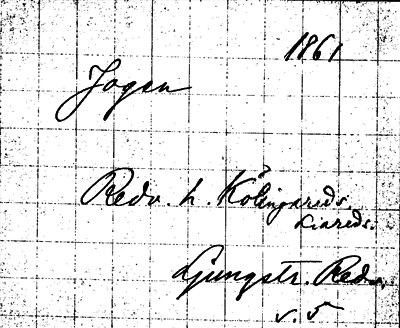 1861
Jogen
Redv. h. Kölingareds.
Liareds.
Ljungstr. Redv.
v. 5